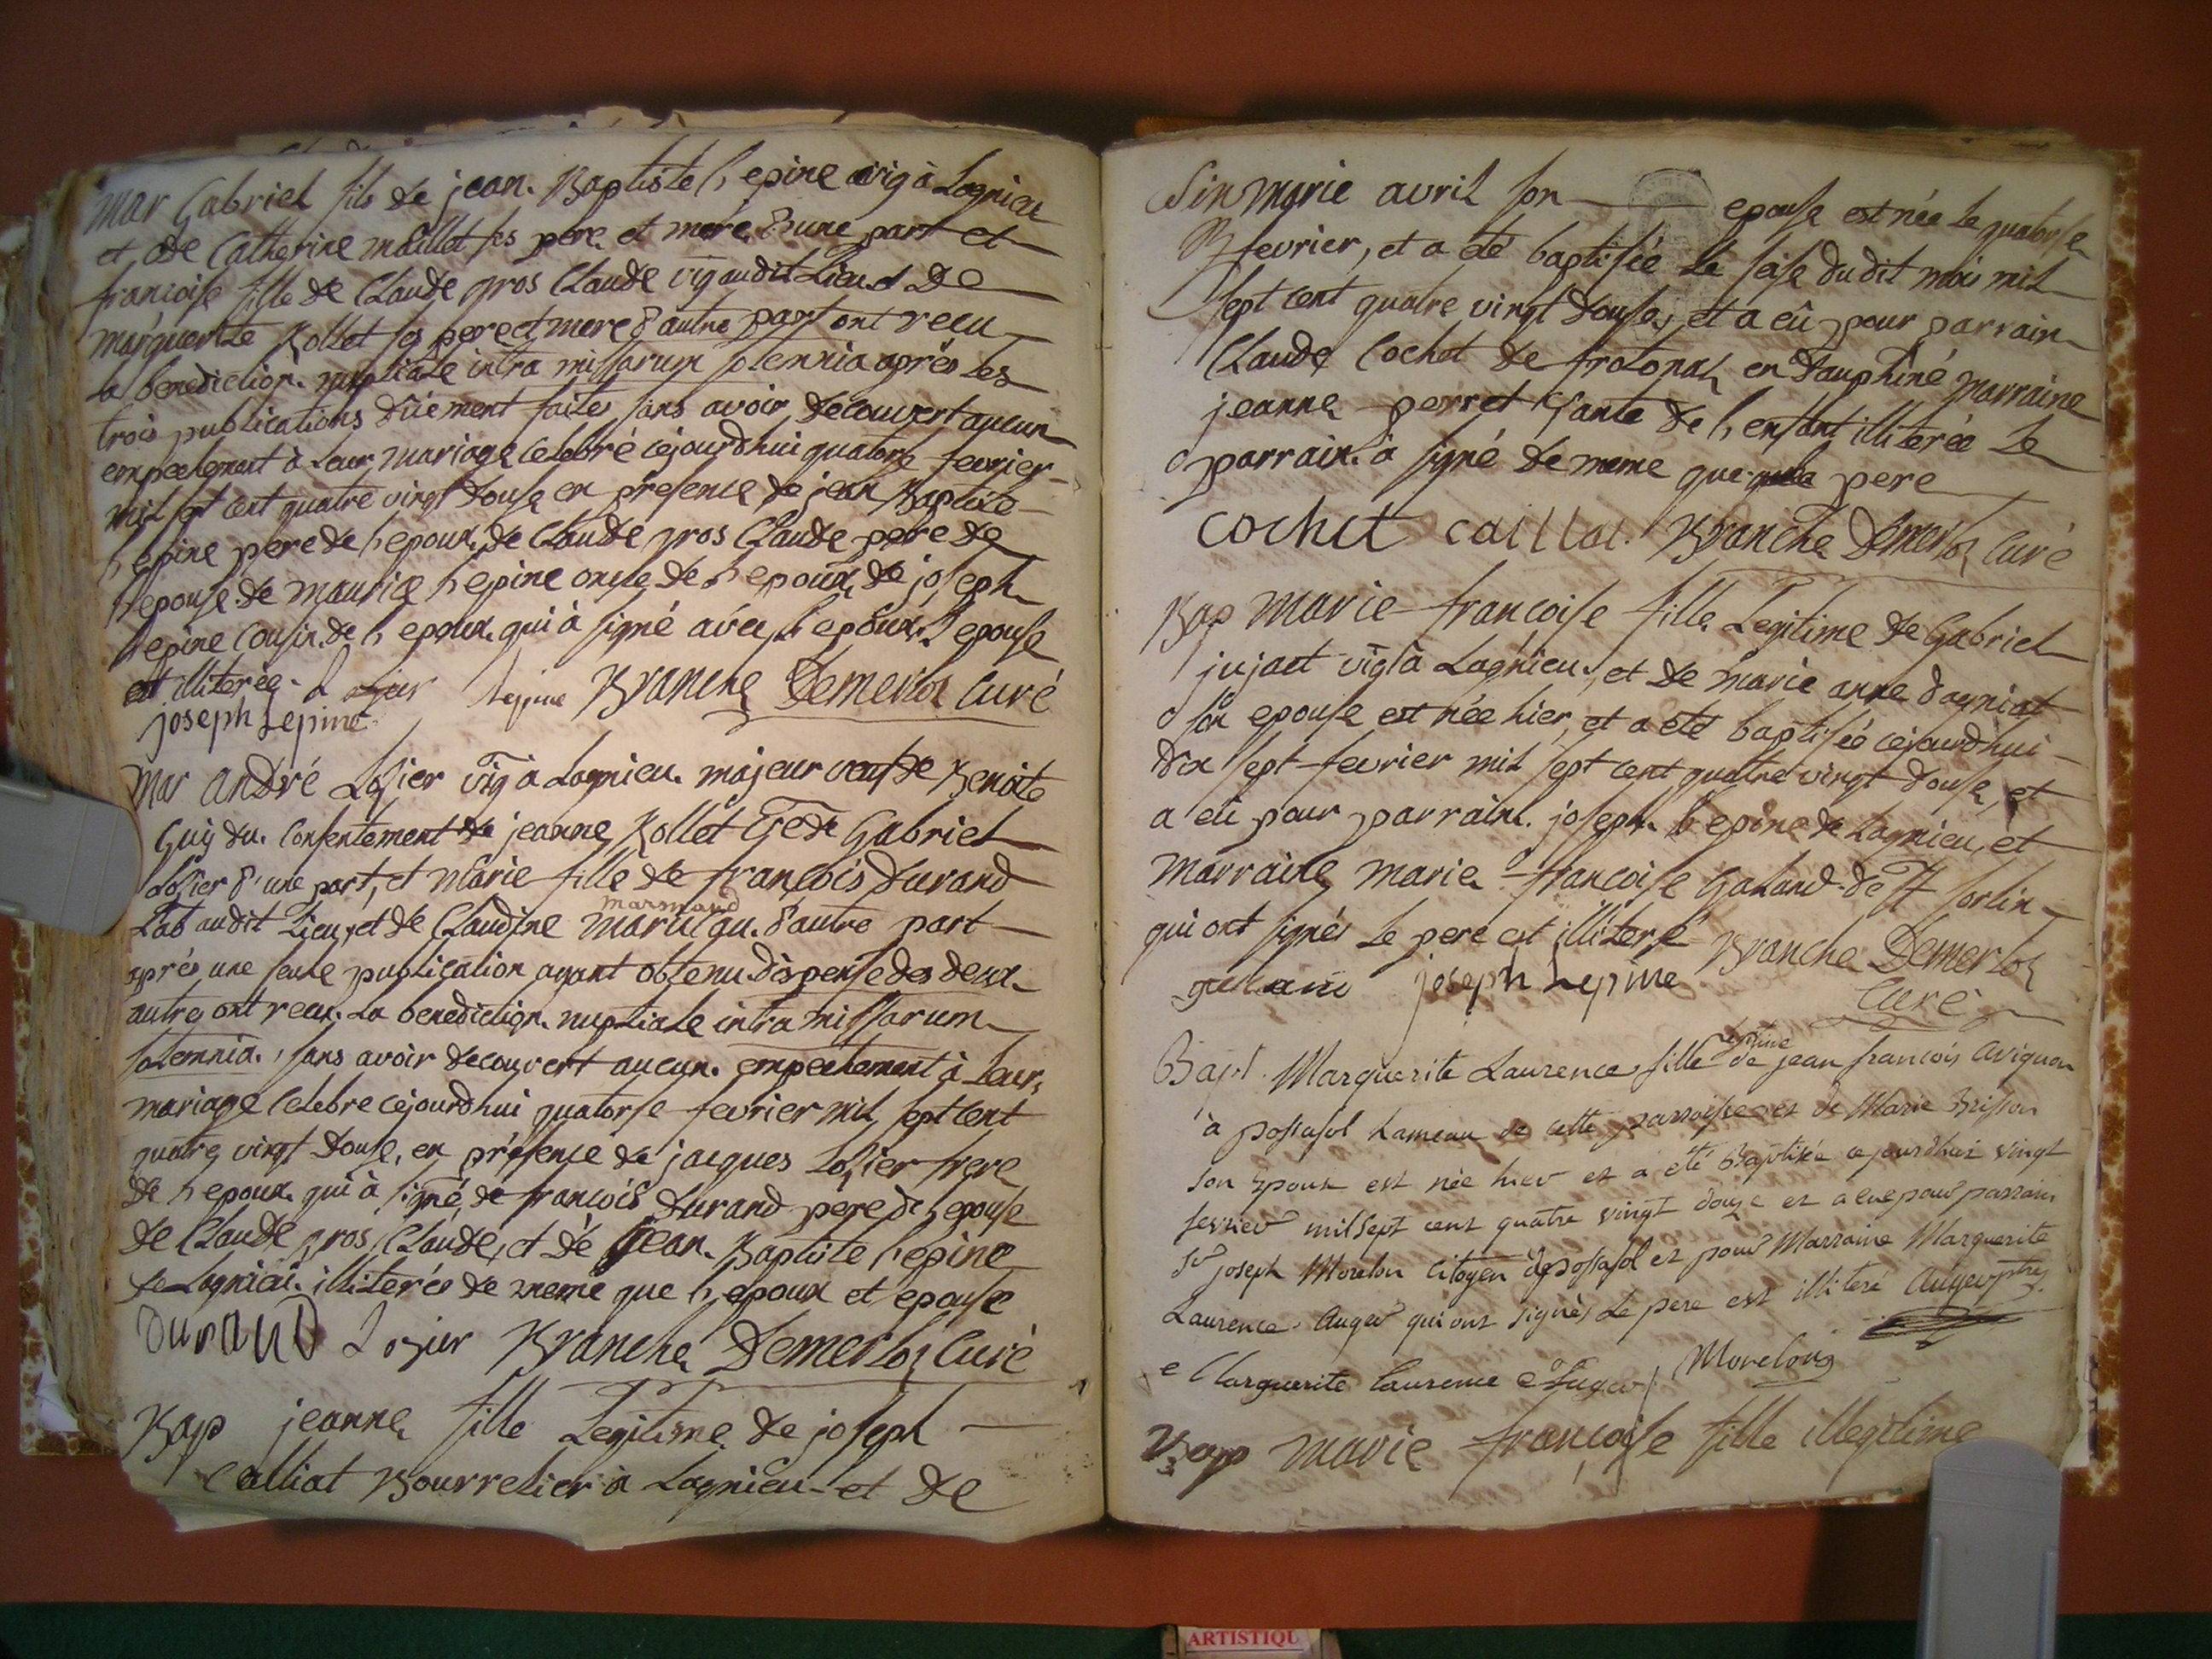 mar Gabriel fils de jean Baptiste l'epine vig à Lagnieu
et de Catherine maillet ses pere et mere d'une part et
francoise fille de Claude gros Claude vig audit Lieu et De
marguerite Rollet ses pere et mere d'autre part ont recu
la benediction nuptiale intra missarum solemnia aprés Les
trois publications dûement faites sans avoir decouvert aucun
empechement à Leur mariage celebré cejourdhui quatorse fevrier
mil sept cent quatre vingt douse en presence de jean Baptiste
l'epine pere de l'epoux, de Claude gros Claude pere de
l'epouse de maurice l'epine oncle de l'epoux, de joseph
l'epine Cousin de l'epoux qui à signé avec l'epoux l'epouse
est illiterée. Losier Lepine Branche Demerloz Curé
joseph Lepine
mar andré Losier vig à Lagnieu majeur veuf de Benoite
Guy du Consentement de jeanne Rollet Gabriel
Losier d'une part, et marie fille de françois durand
Lab audit Lieu, et de Claudine marmand d'autre part
aprés une seule publication ayant obtenu dispense des deux
autres ont recu La benediction nuptiale intra missarum
solemnia, sans avoir decouvert aucun empechement à Leur
mariage Celebre cejourdhui quatorse fevrier mil sept cent
quatre vingt douse, en présence de jacques Losier frere
de l'epoux qui à signé, de françois durand pere de l'epouse
de Claude gros Claude, et de jean Baptiste l'epine
de Lagnieu illiterés de meme que l'epoux et epouse
Durand Losier Branche Demerloz Curé
Bap jeanne fille Legitime de joseph
Calliat Bourrelier à Lagnieu et de
marie avril son epouse est née Le quatorse
fevrier, et a eté baptisée Le seise dudit mois mil
sept cent quatre vingt douse, et a eû pour parrain
Claude Cochet de en Dauphiné marraine
jeanne perret tante de l'enfant illiterée Le
parrain à signé de meme que le pere
cochet caillat Branche Demerloz Curé
Bap marie francoise fille Legitime de Gabriel
jujat vig à Lagnieu, et de marie anne dagniat
son epouse est née hier, et a eté baptisée cejourdhui
dix sept fevrier mil sept cent quatre vingt douse, et
a eu pour parrain joseph l'epine de Lagnieu, et
marraine marie francoise Galand de St sorlin
qui ont signés Le pere est illiteré Branche Demerloz
galand joseph Lepine Curé
Bapt. Marguerite Laurence fille legitime de jean francois avignon
à possafol hameau de cette parroisse et de Marie Brisson
son Epouse est née hier et a été Baptisée cejourdhui vingt
fevrier mil sept cent quatre vingt douze et a eue pour parrain
Sr joseph Morelon Citoyen de possafol et pour Marraine Marguerite
Laurence Auger qui ont signés Le pere est illiteré Auger ptre
Marguerite Laurence Auger Morelon
Bap marie françoise fille illegitime
ARTISTIQU